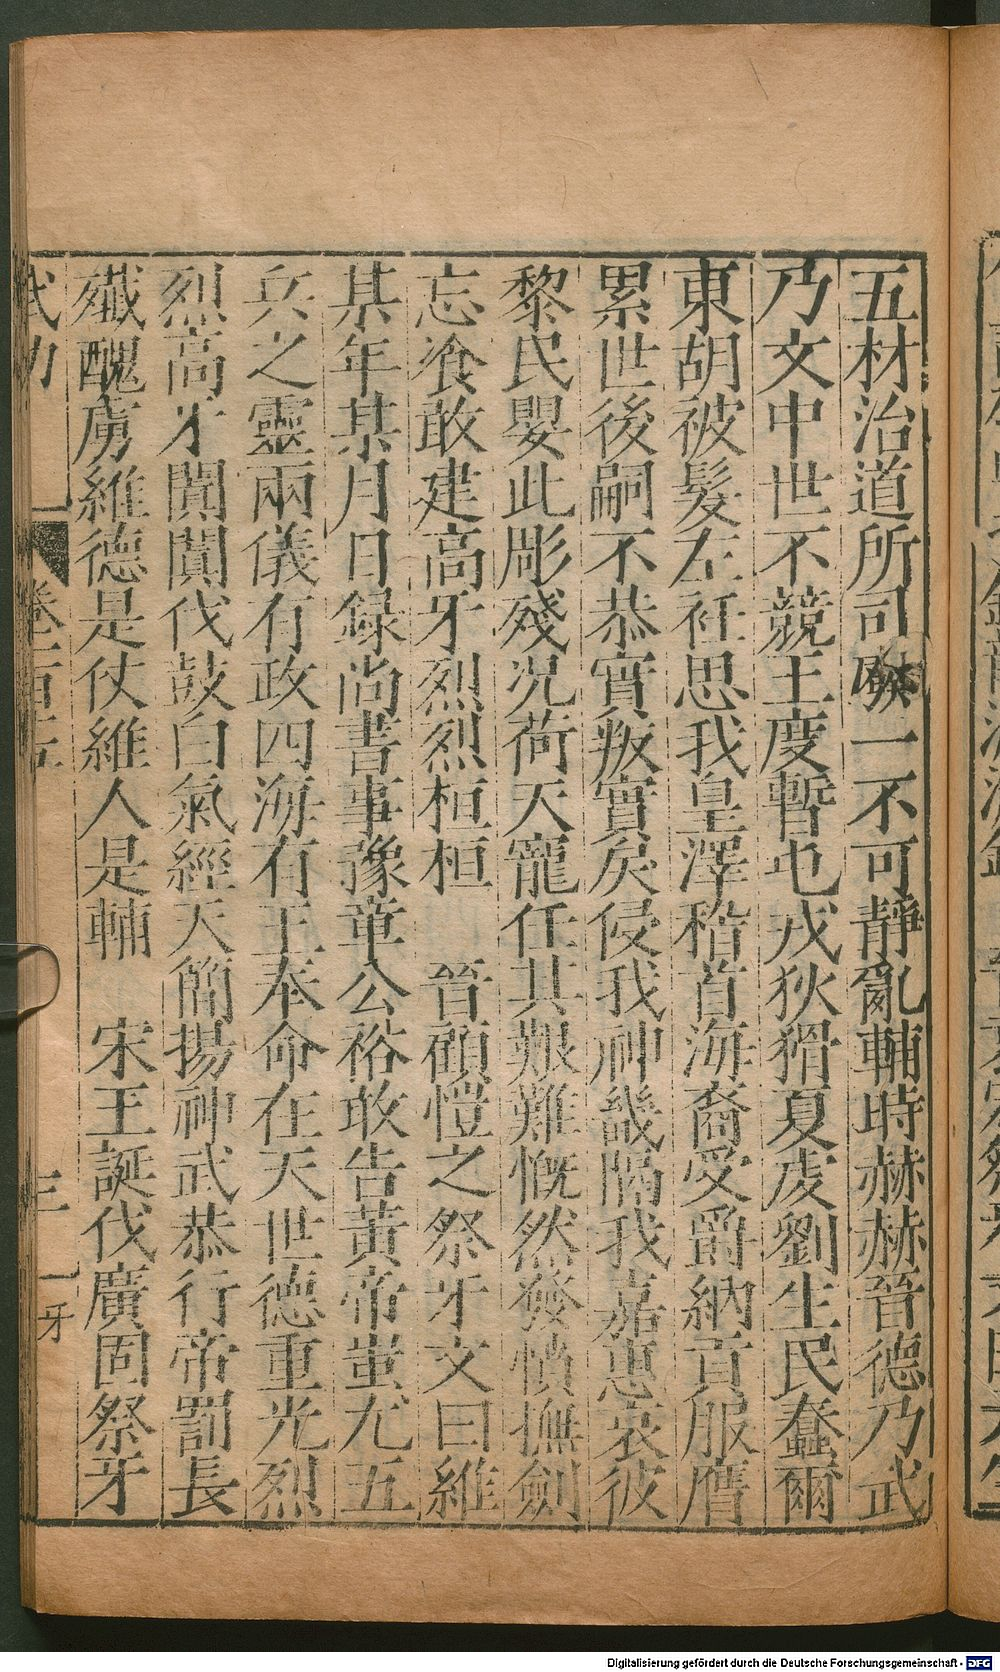 五材治道所司廢一不可靜亂輔時赫赫晉德乃武
乃文中世不競王度暫也戎狄猾夏虔劉生民蠢爾
東胡被髮左衽思我皇澤稽首海裔受爵納貢服膺
累世後嗣不恭實叛實戾侵我神畿隔我嘉惠哀彼
黎民嬰此彫殘況荷天寵任其艱難慨然發憤撫劍
忘飡敢建高牙烈烈桓桓 晉顧愷之祭牙文曰維
某年某月日錄尚書事豫章公裕敢告黃帝蚩尤五
兵之靈兩儀有政四海有王奉命在天世德重光烈
烈高牙闐闐伐鼓白氣經天簡揚神武恭行帝罰長
殲醜虜維德是仗維人是輔 宋王誕伐廣固祭牙
武功
卷二百五
三
牙
Digitalisierung gefördert durch die Deutsche Forschungsgemeinschaft - DFG